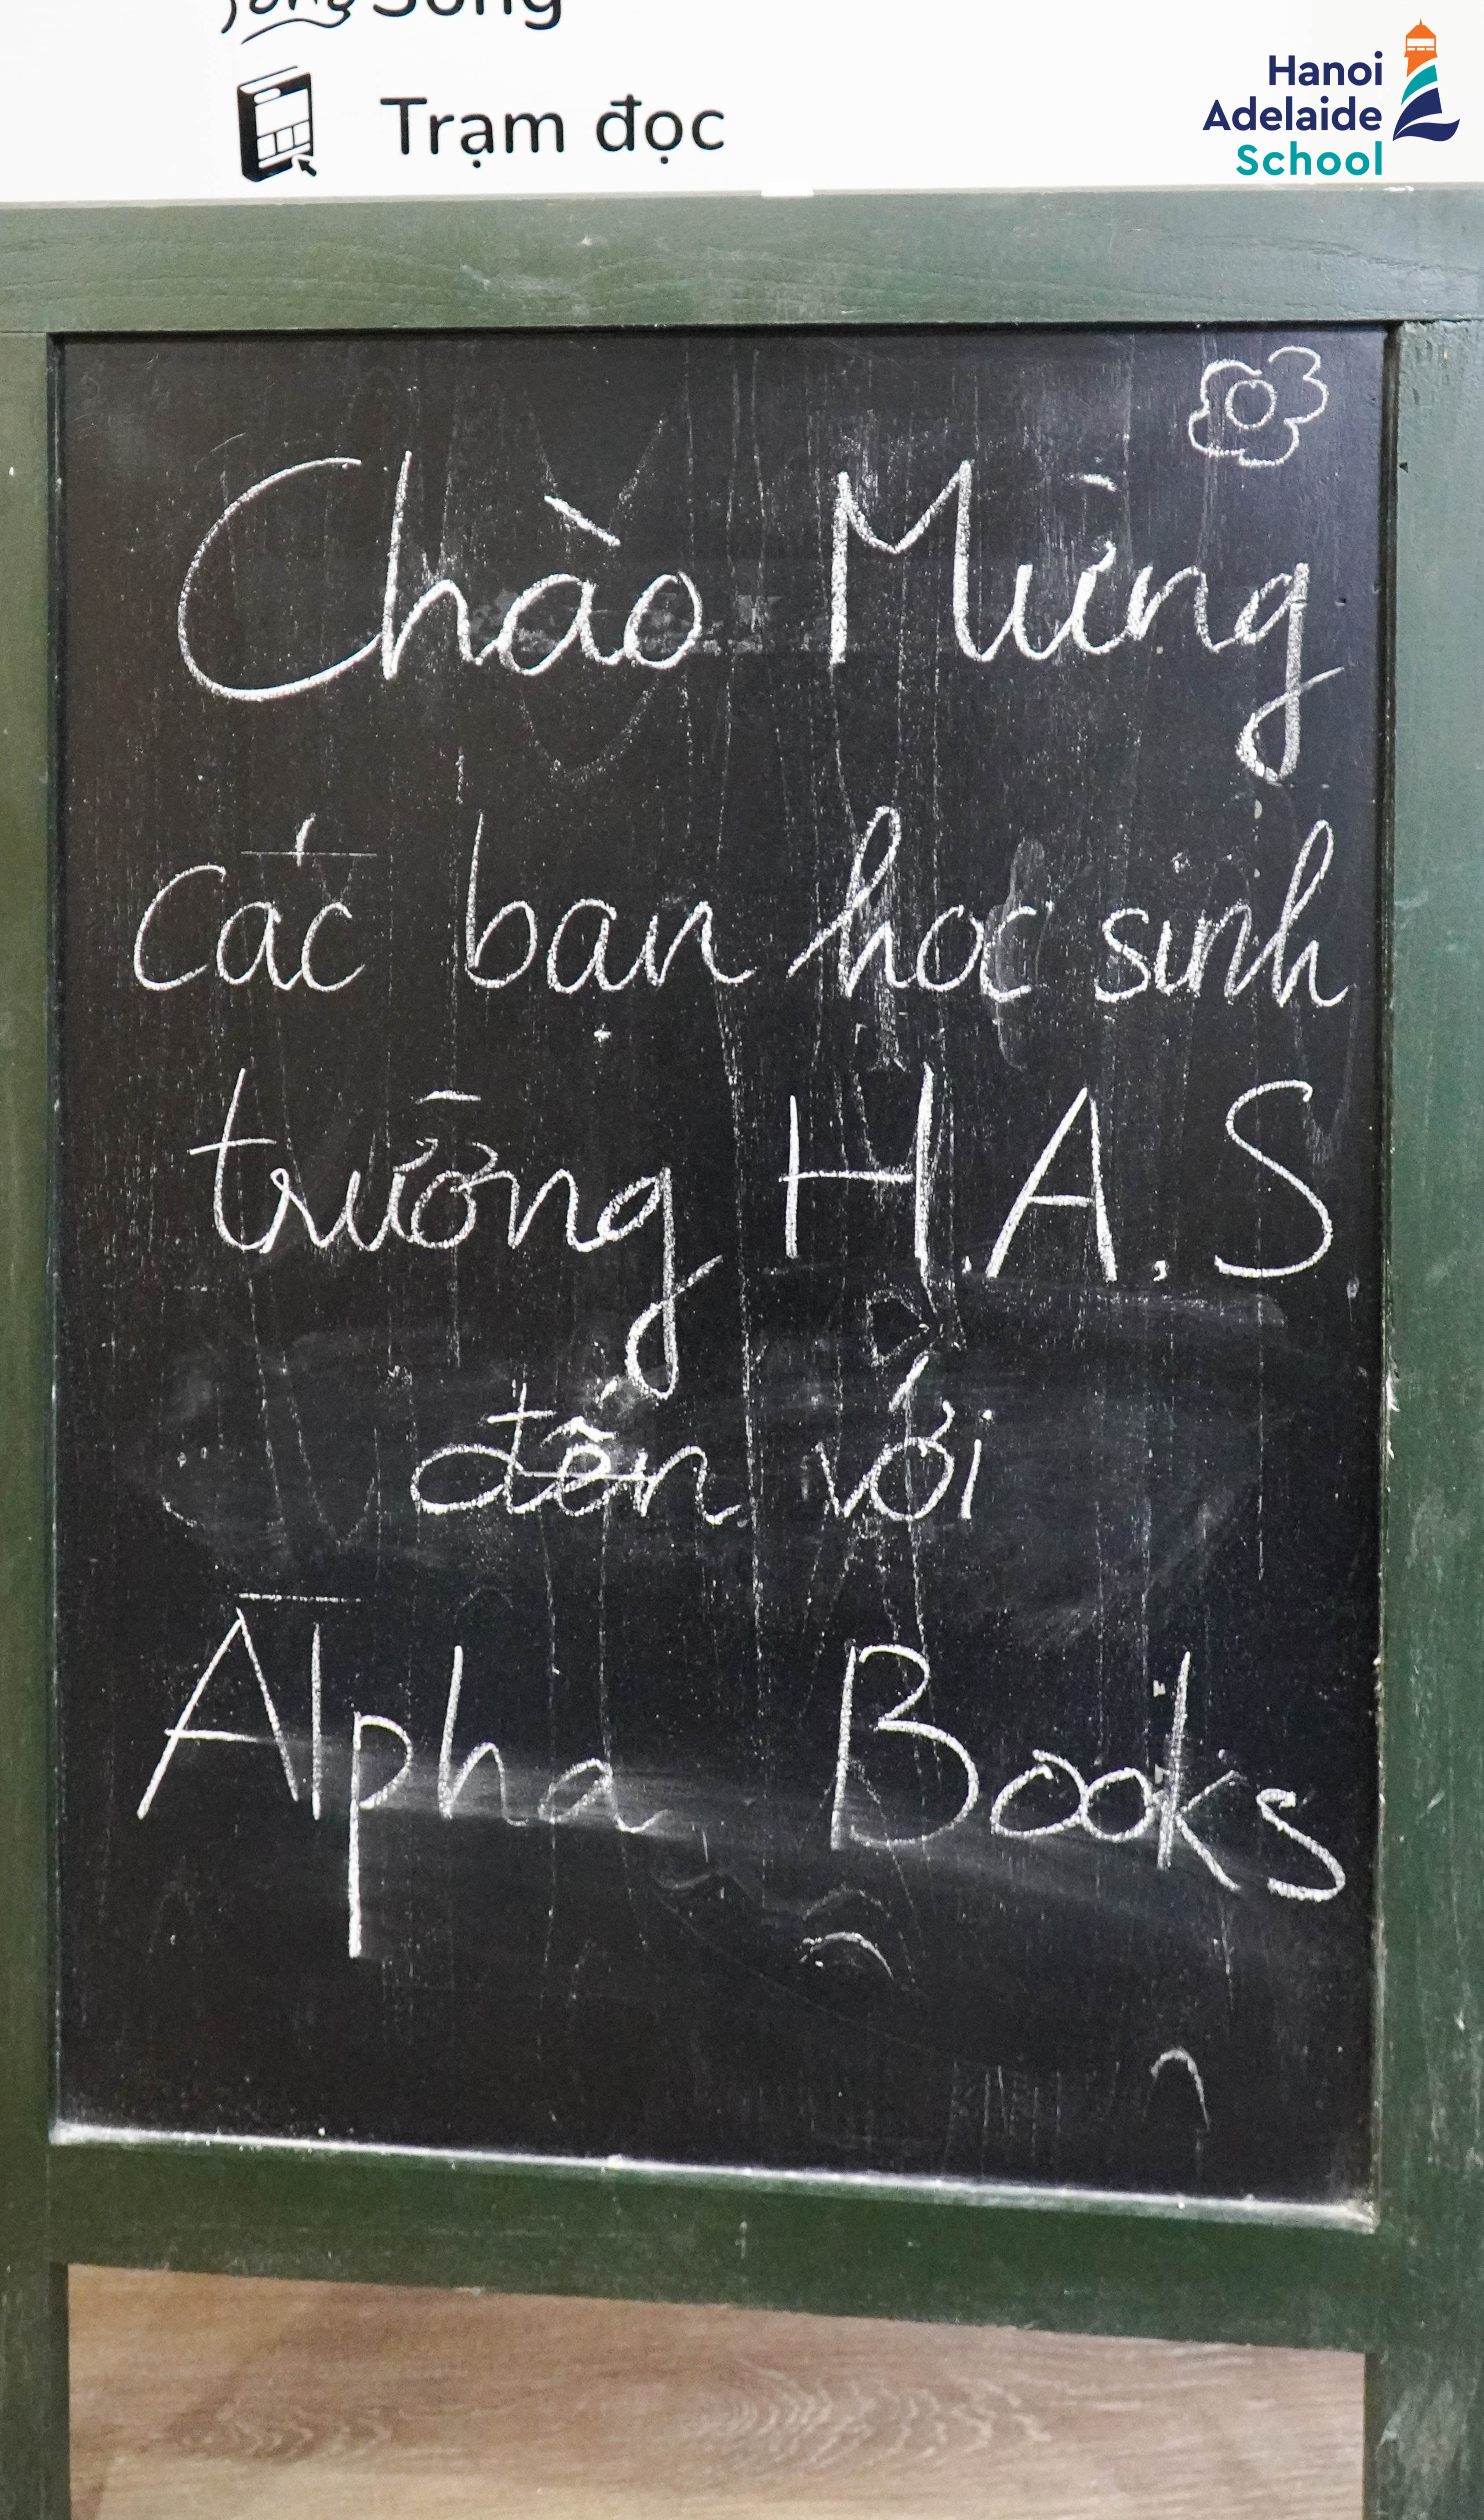 Sống
Trạm đọc
Hanoi
Adelaide
School
Chào Mừng
các bạn học sinh
trường H.A.S
đến với
Alpha Books